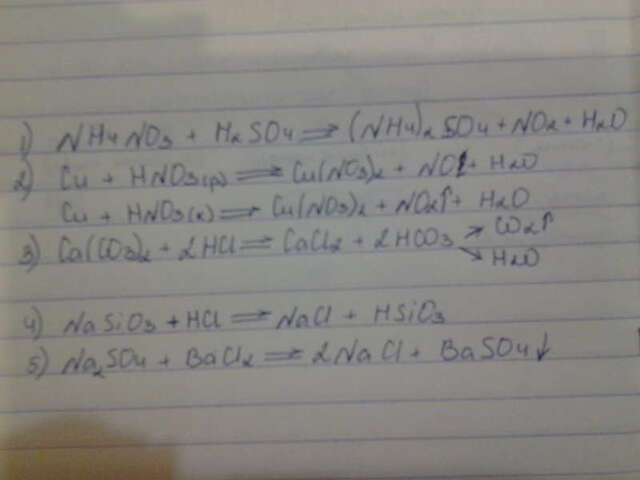 1) NH4NO3 + H2SO4 ⇒ (NH4)2SO4 + NO2 + H2O
2) Cu + HNO3(р) ⇒ Cu(NO3)2 + NO↑ + H2O
Cu + HNO3(к) ⇒ Cu(NO3)2 + NO2↑ + H2O
3) Ca(CO3)2 + 2HCl ⇒ CaCl2 + 2HCO3 ↗ CO2↑
↘ H2O
4) NaSiO3 + HCl ⇒ NaCl + HSiO3
5) Na2SO4 + BaCl2 ⇒ 2NaCl + BaSO4↓